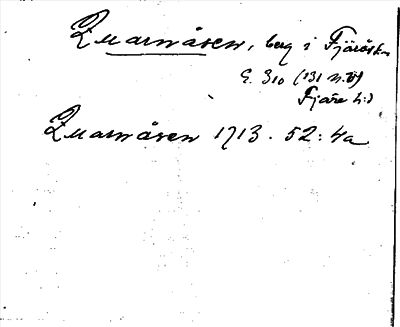 Quarnåsen, berg i Fjärås sn
G. 310 (131 n.v)
Fjäre hd
Quarnåsen 1713. 52:4a